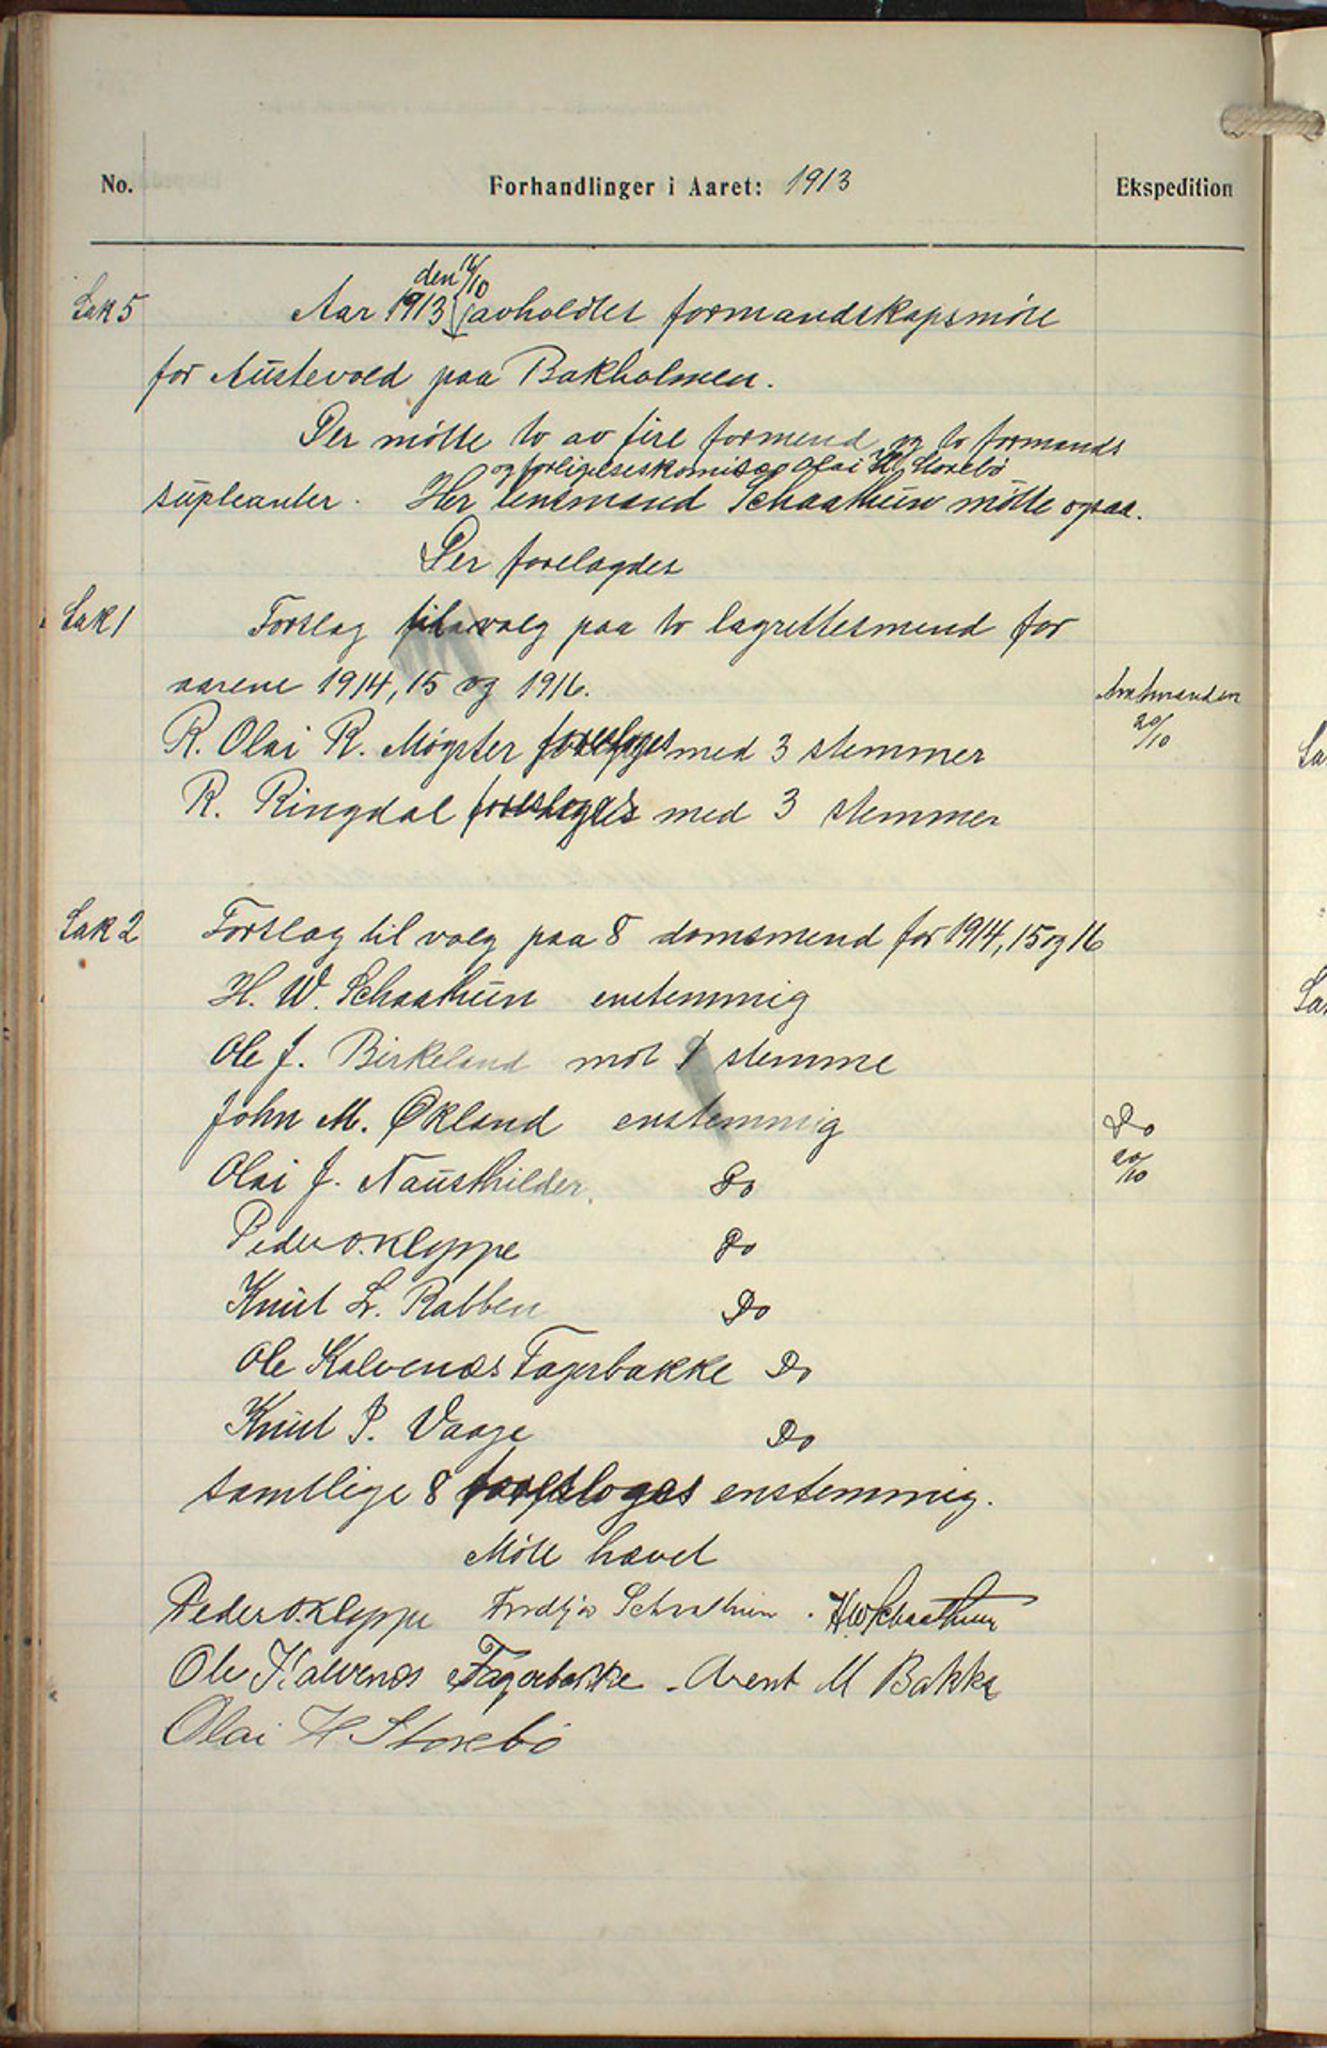 No. Forhandlinger i Aaret: 1913 Ekspedition
den 16/10
Sak 5 Aar 1913 avholdtes formandskapsmöte
for Austevold paa Bakholmen.
Der mötte to av fire formend og to formands
og forligelseskomisær Olai H. Storebö
supleanter. Her lensmand Schaathun mötte ogsaa.
Der forelagdes
Sak 1 Forslag til valg paa to lagrettesmend for
aarene 1914, 15 og 1916. Amtmanden
R. Olai R. Møgster foresloges med 3 stemmer 20/10
R. Ringdal foresloges med 3 stemmer
Sak 2 Forslag til valg paa 8 domsmend for 1914, 15 og 16
H. W. Schaathun enstemmig
Ole J. Birkeland mot 1 stemme
John M. Økland enstemmig Do
Olai J. Nausthilder. Do 20/10
Peder O. Kleppe Do
Knut L. Rabben Do
Ole Kalvenæs Fagerbakke Do
Knut P. Vaage Do
samtlige 8 foresloges enstemmig.
Möte hævet
Peder O. Kleppe Fredtjov Schaathun. HWSchaathun
Ole Kalvenæs Fagerbakke. Arent M Bakke
Olai H Storebö